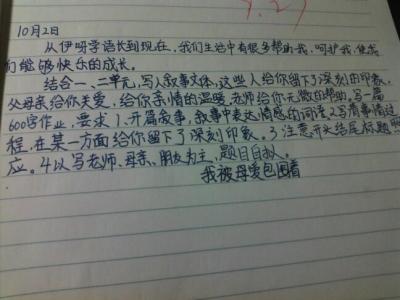 9.29
10月2日
从伊呀学语长到现在,我们生活中有很多帮助我,呵护我,使我
们能够快乐的成长。
结合一、二单元,写人叙事文体,这些人给你留下了深刻的印象。
父母亲给你关爱,给你亲情的温暖,老师给你无微的帮助。写一篇
600字作业,要求1、开篇叙事,叙事中表达情感的词语2写清事情过
程,在某一方面给你留下了深刻印象。3注意开头结尾标题
应。4以写老师、母亲、朋友为主,题目自拟。
我被母爱包围着